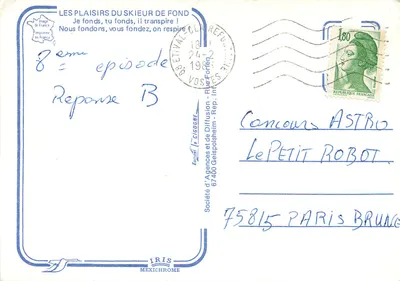 LES PLAISIRS DU SKIEUR DE FOND
Je fonds, tu fonds, il transpire !
Nous fondons, vous fondez, on respire
8ème episode
Reponse B
Société d'Agences et de Diffusion - Rue Fonlon
67400 Geispolsheim - Rep. Int.
IRIS
MEXICHROME
VOSGES
1,80
Concours ASTRO
Le PETIT ROBOT
75815 PARIS BRUNE